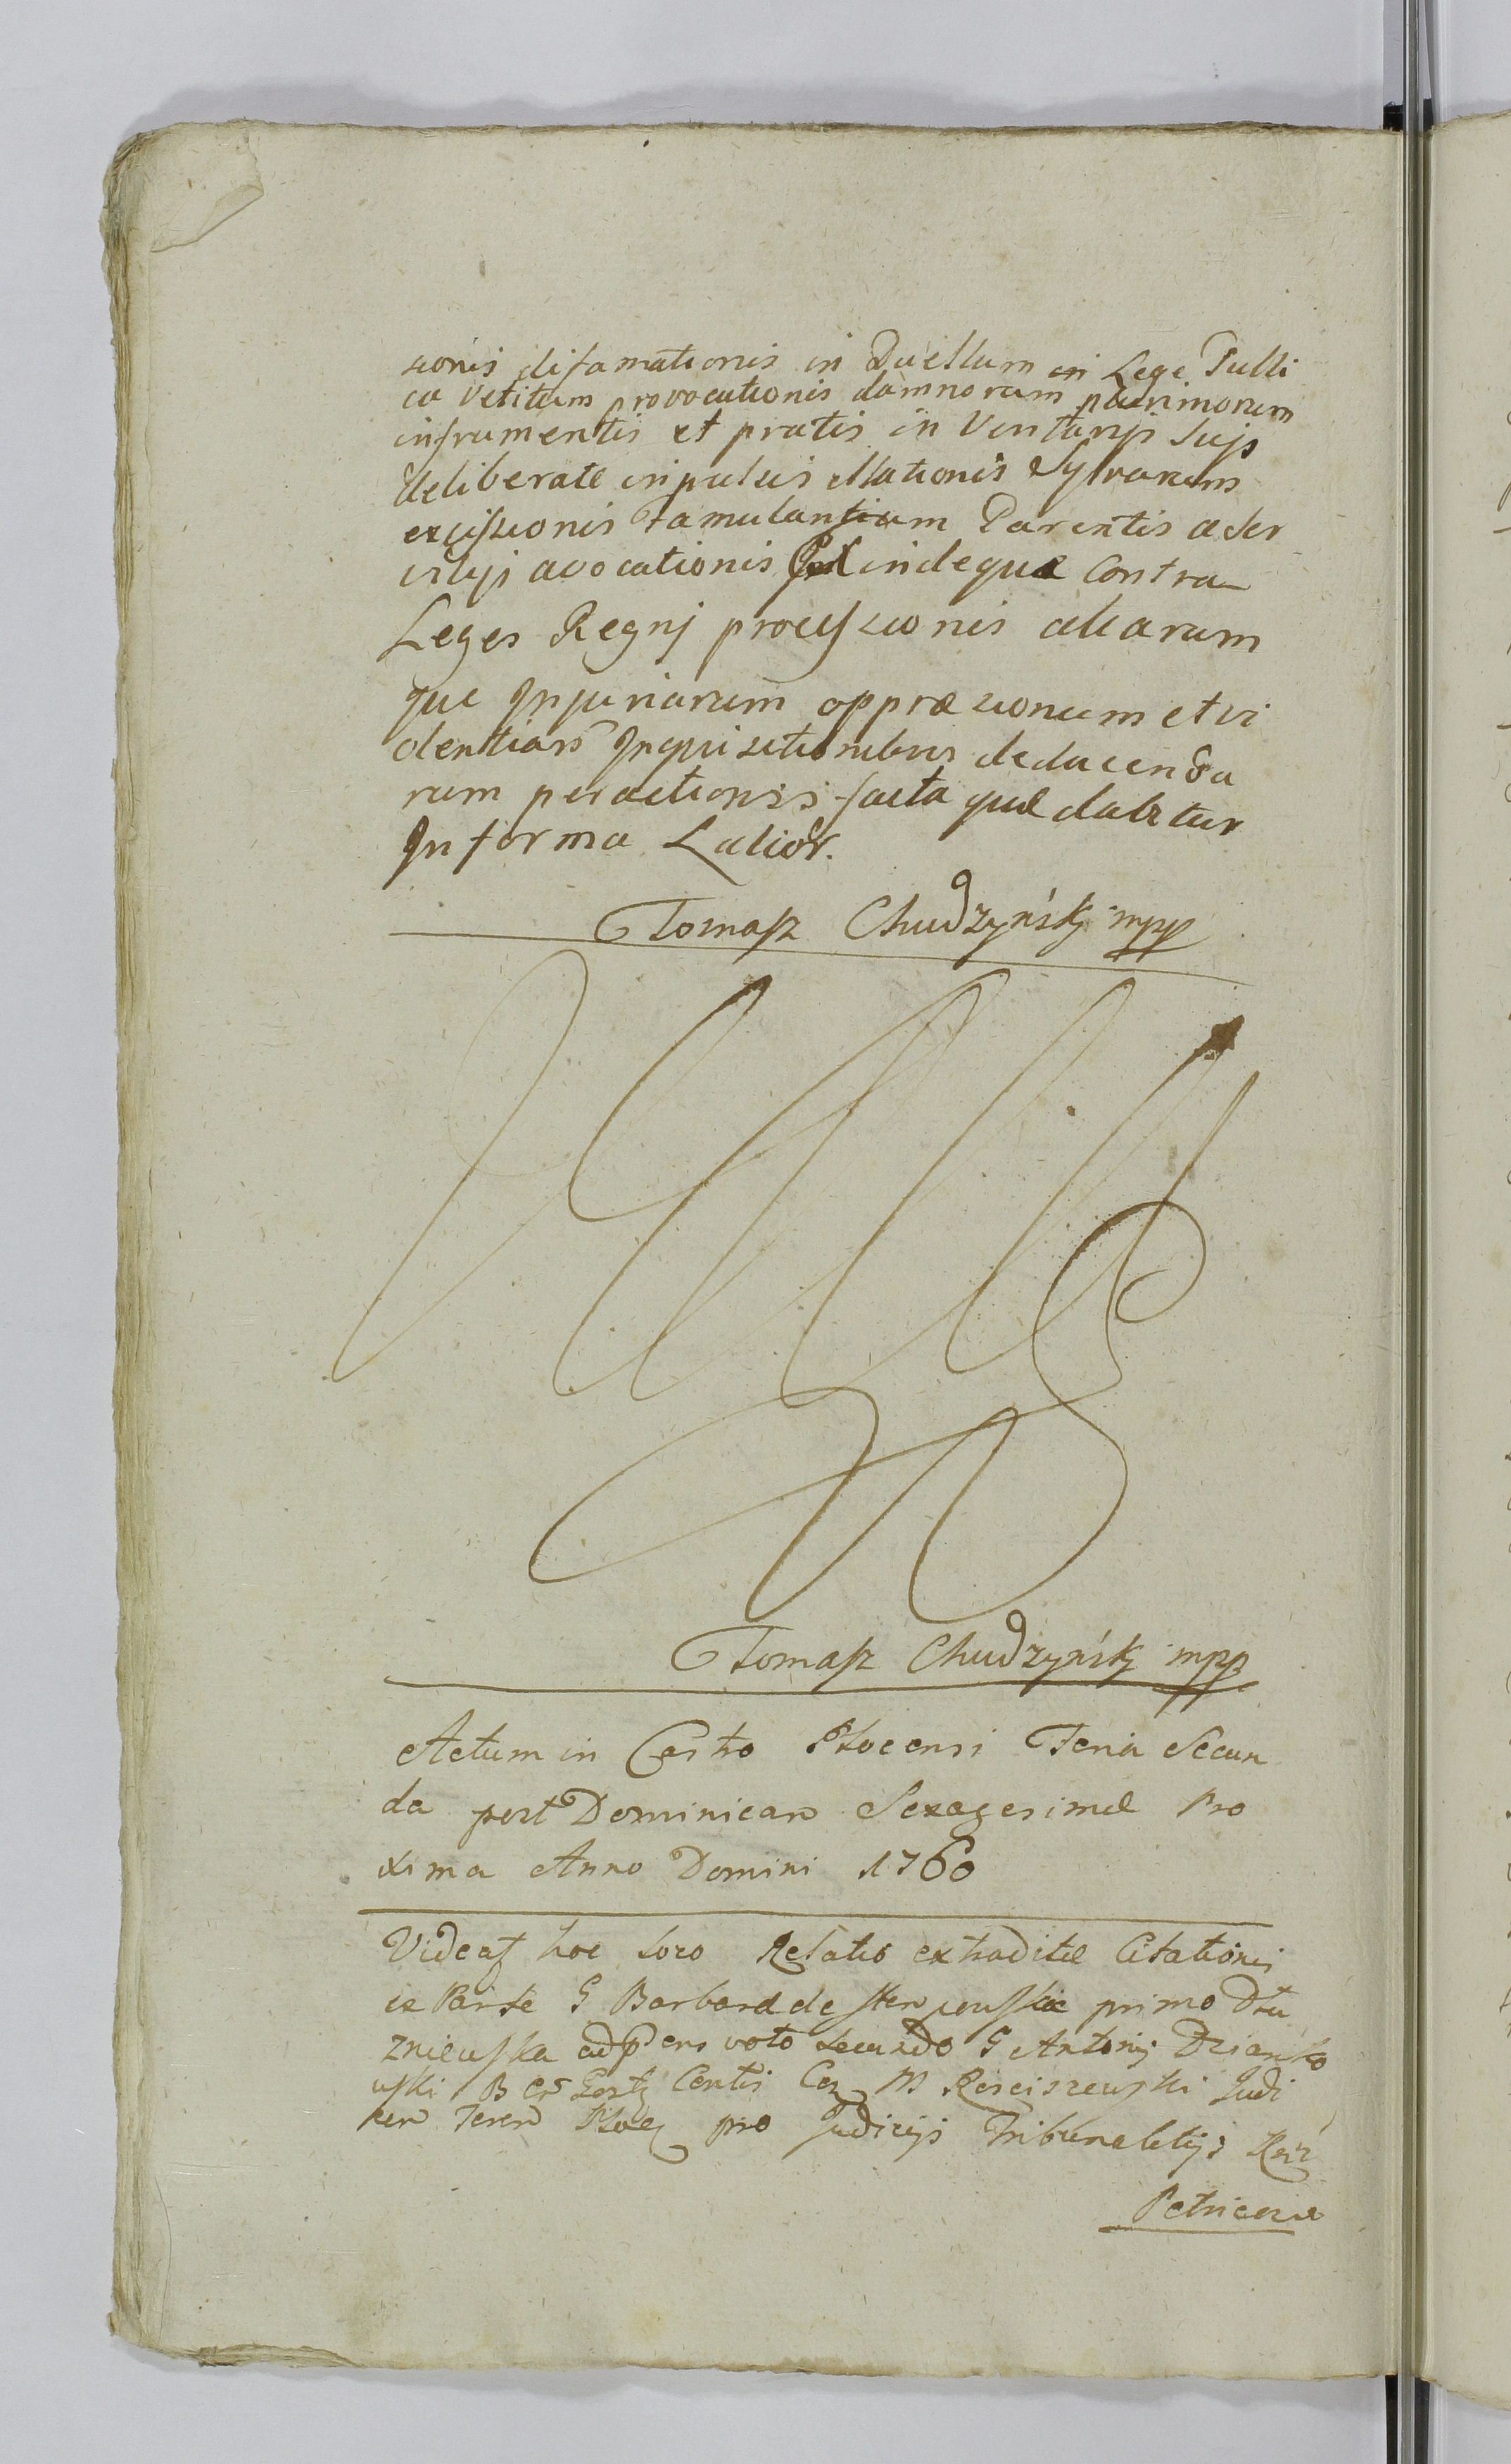 sionis difamationis in Duellum in Lege Publi
ca Vetitum provocationis damnorum plurimorum
infrumentis et pratis in Ventarijs Sujs
deliberate inpulsis illationis Sylvarum
excissionis Famulantium Parentis a Ser
vitijs avocationis indequæ Contra
Leges Regnj processionis aliarum
que Injuriarum oppræsionum et vi
olentiarũ Inquisitionibus deducenda
rum peractionis facta quæ dabitur
In forma Latiori.
Tomasz Chudzyńskj mpp
Tomasz Chudzyńskj mpp
Actum in Castro Plocensi Feria Secun
da post Dominicam Sexagesimæ Pro
xima Anno Domini 1760
Videat hoc loco Relatio extraditæ Citationis
ex Parte G Barbaræ de primo
voto secundo G Antonij Dziarko
wski M Kościszewski Judi
pro Judicijs Tribunalitijs